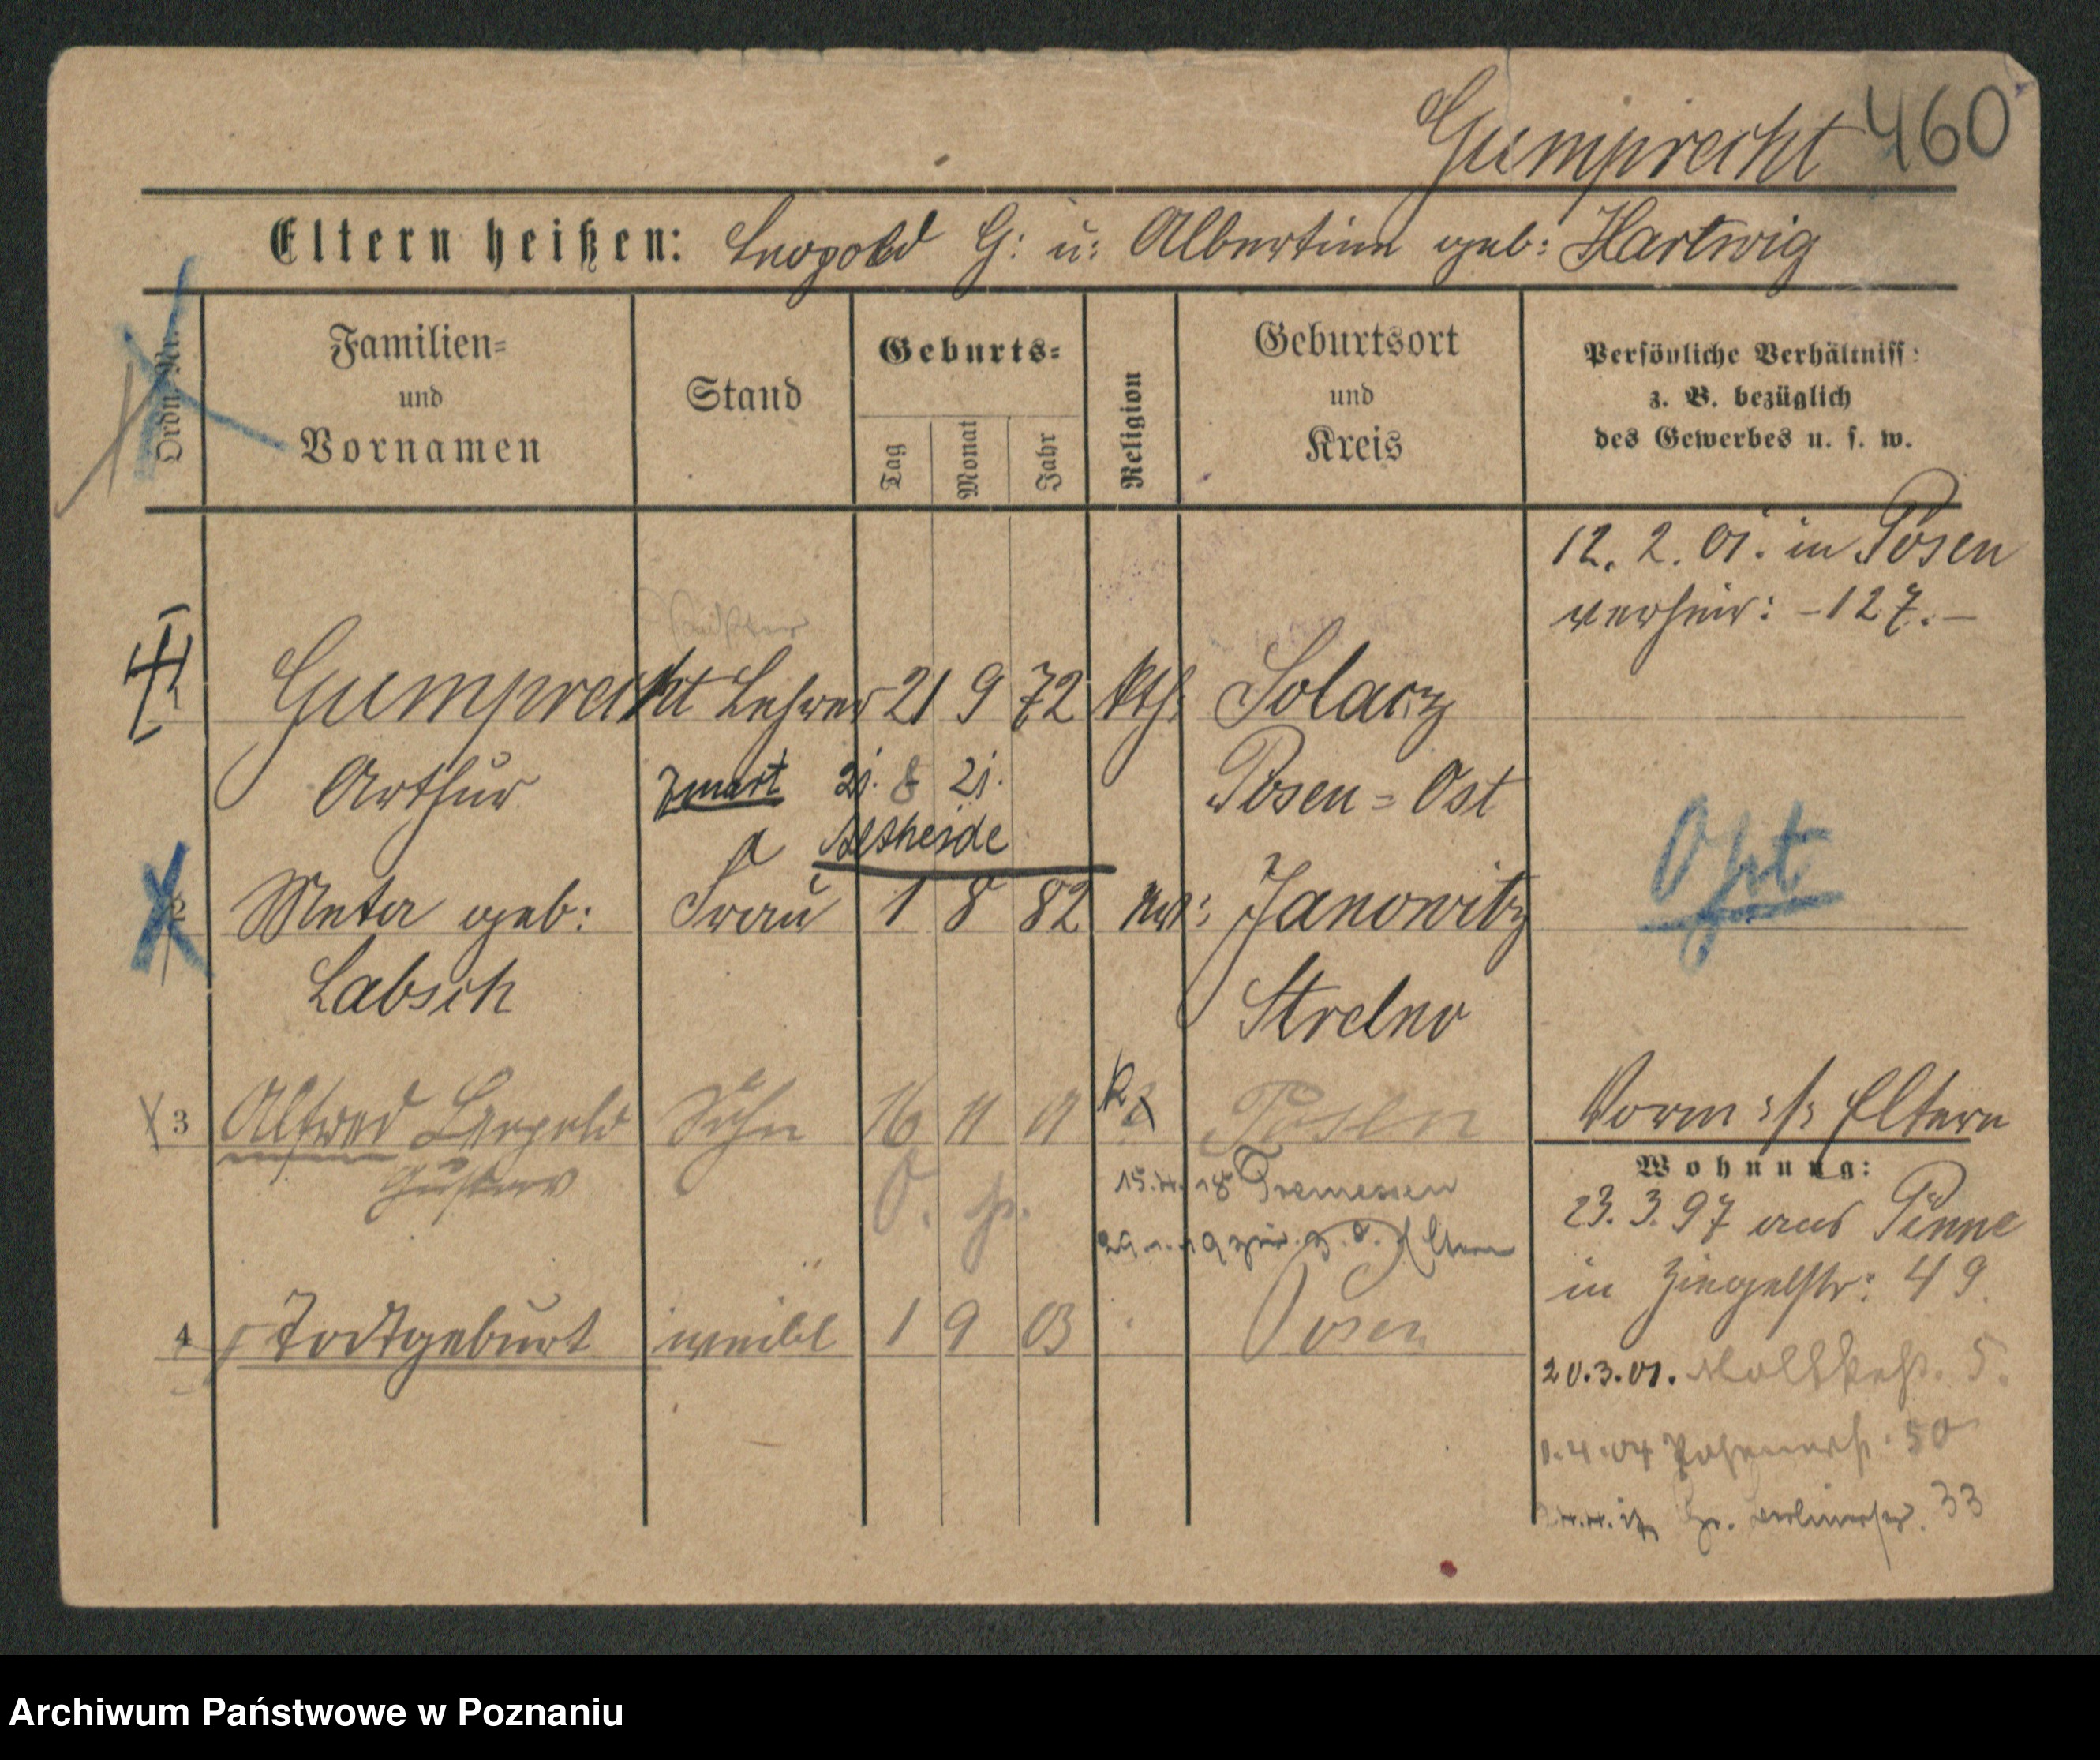 Gumprecht 460
Eltern heißen: Leopold G: u: Albertine geb: Hartwig
Ordn. Nr.
Familien=
und
Vornamen
Stand
Geburts=
Tag
Monat
Jahr
Religion
Geburtsort
und
Kreis
Persönliche Verhältniss
z. B. bezüglich
des Gewerbes u. s. w.
12. 2. 01. in Posen
verheir: - 127. -
Gumprecht Lehrer 21 9 72 kth: Solacz
Arthur Posen = Ost
zmarł 21. 8 21.
a
Opt
2 Meta geb: Frau 1 8 82 Janowitz
Labsch Strelno
3 Alfred Leopold Sohn 16 11 01 k Posen
Gustav
O. p.
15. 4. 18 Tremessen
29. 1. 19 zur. z. d. Eltern
4 Todtgeburt weibl 1 9 03 Posen
Vorm :/: Eltern
Wohnung:
23. 3. 97 aus Pinne
in Ziegelstr: 49.
20. 3. 01. Moltkestr. 5.
1. 4. 04 50
Gr. Berlinerstr. 33
Archiwum Państwowe w Poznaniu